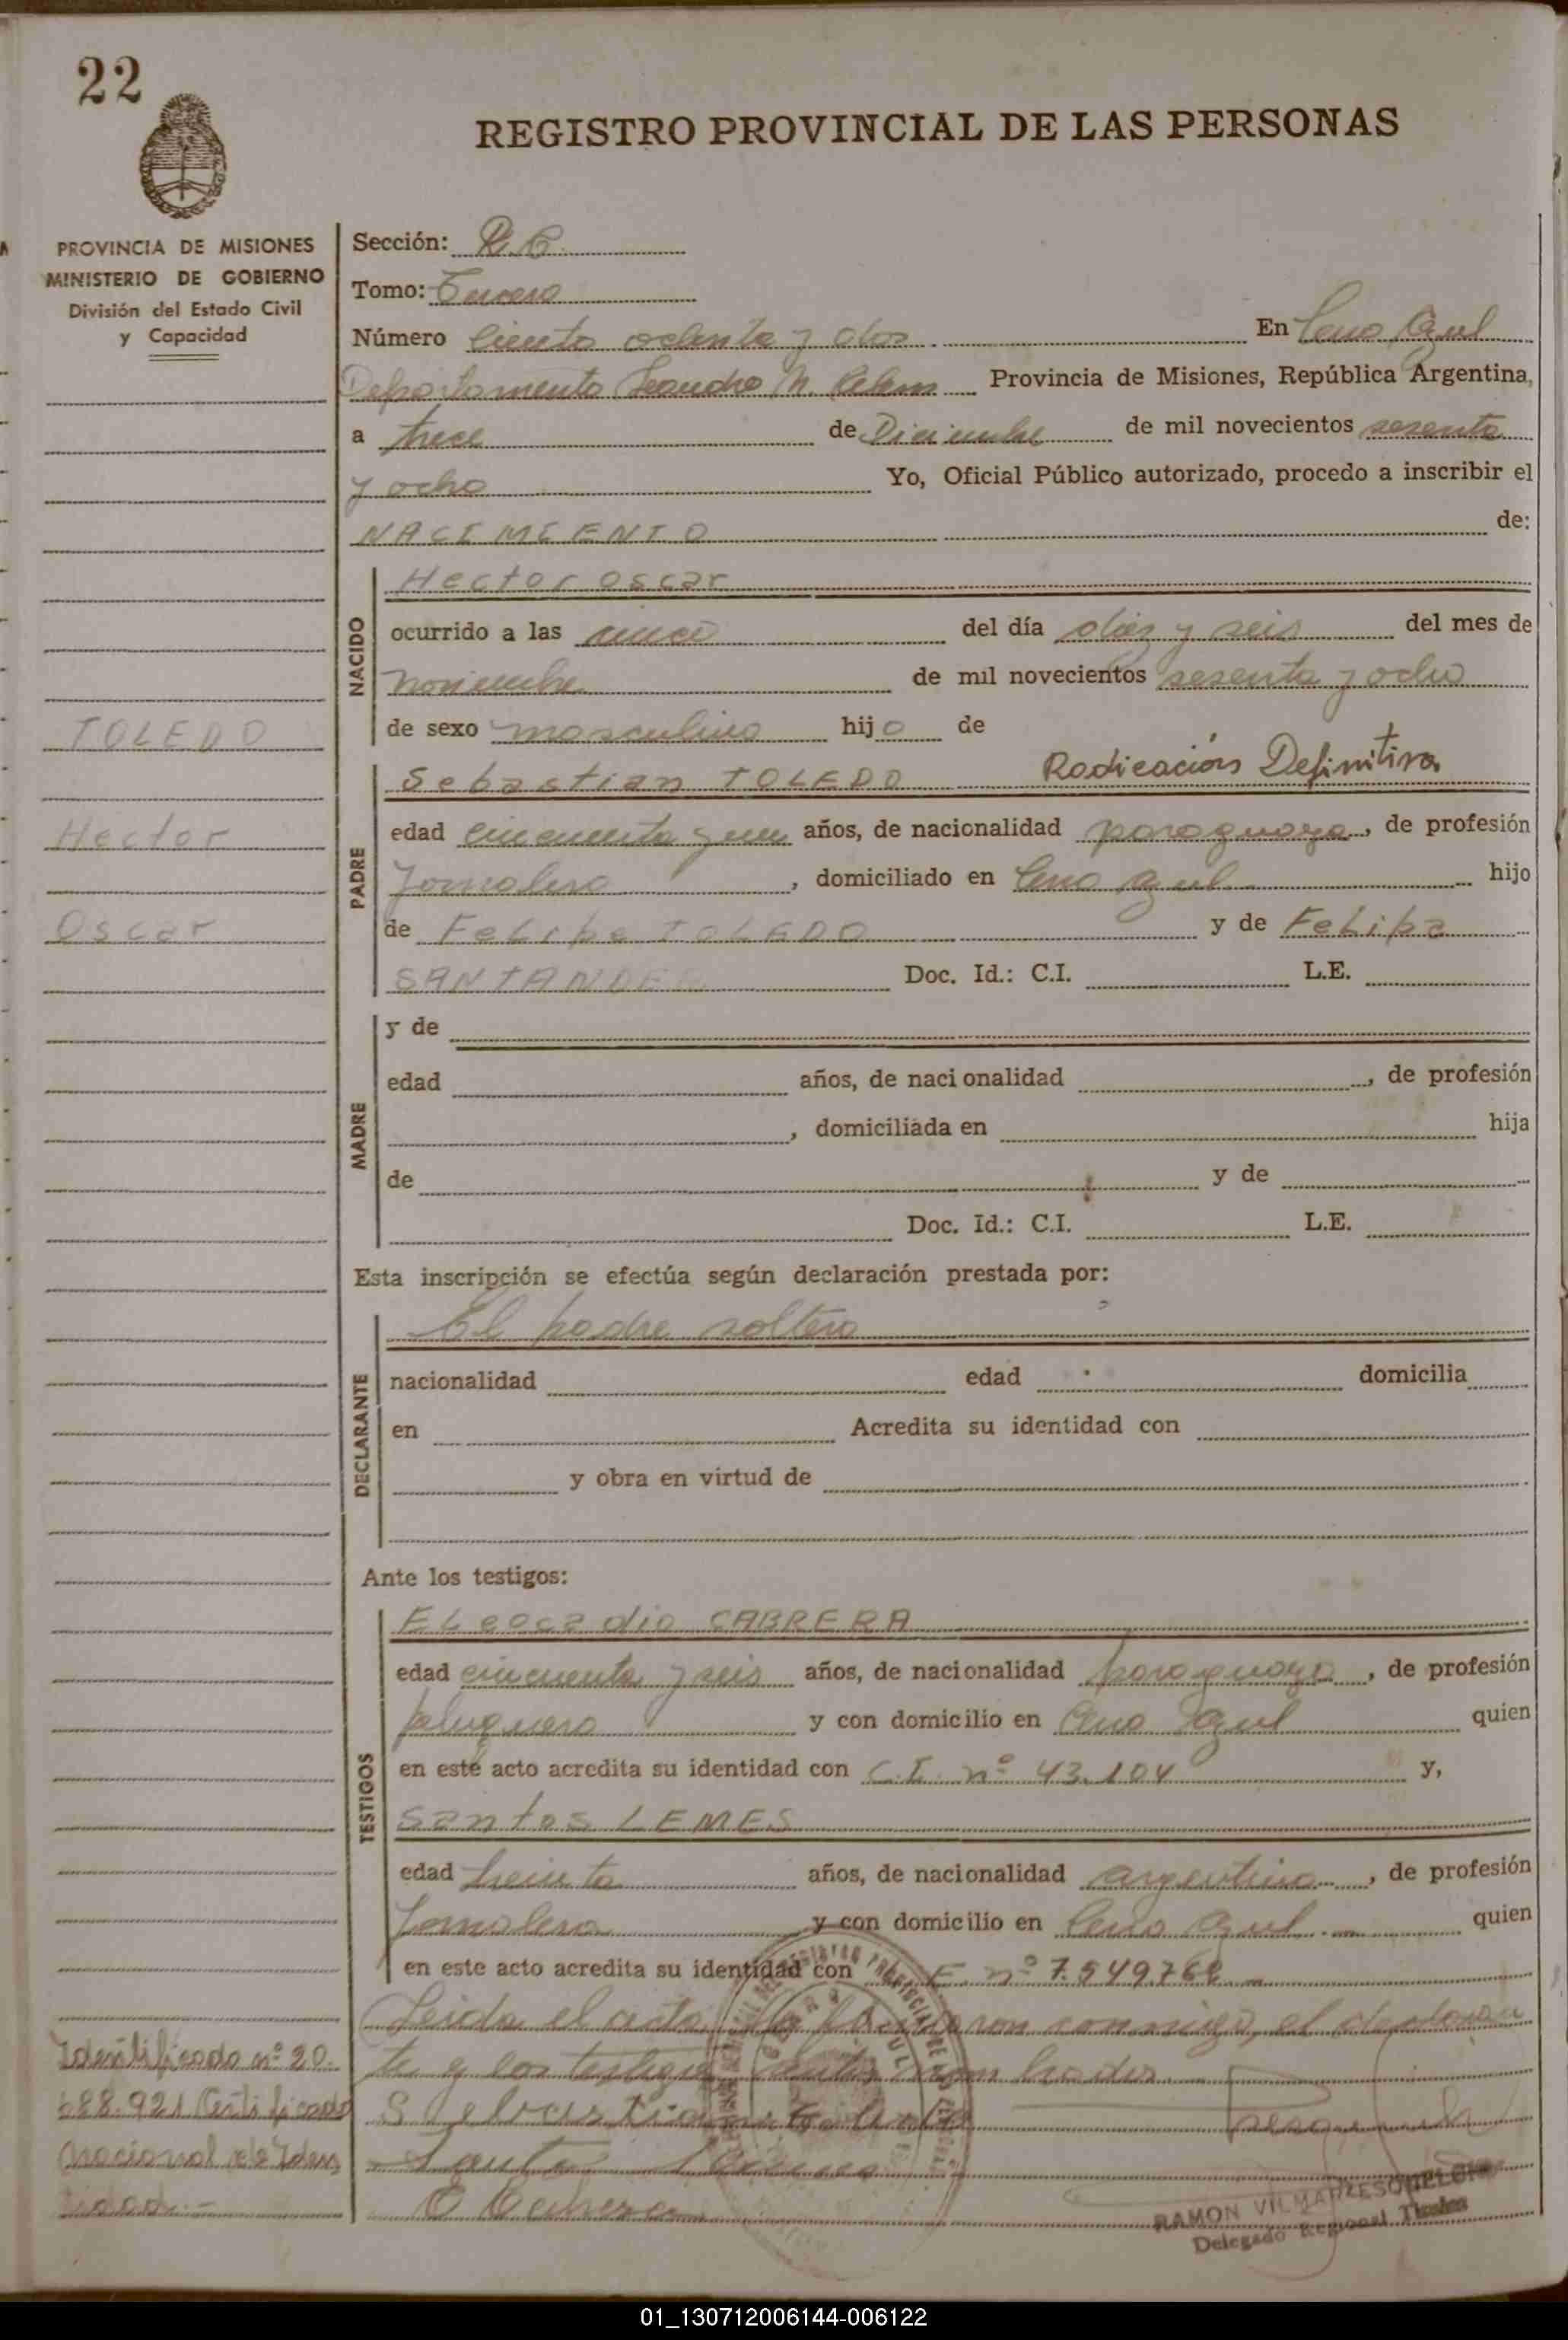 22
REGISTRO PROVINCIAL DE LAS PERSONAS
PROVINCIA DE MISIONES
MINISTERIO DE GOBIERNO
División del Estado Civil
y Capacidad
TOLEDO
Hector
Oscar
Identificado nº 20.
688.921 Certificado
Nacional de Iden
tidad.-
Sección: R.C.
Tomo: Tercero
Número Ciento ochenta y dos. En Cerro Azul
Departamento Leandro N. Alem Provincia de Misiones, República Argentina,
a trece de Diciembre de mil novecientos sesenta
y ocho Yo, Oficial Público autorizado, procedo a inscribir el
NACIMIENTO de:
NACIDO
Hector Oscar
ocurrido a las cinco del día diez y seis del mes de
noviembre de mil novecientos sesenta y ocho
de sexo masculino hijo de
PADRE
Sebastian TOLEDO Radicación Definitiva
edad cincuenta y un años, de nacionalidad paraguaya, de profesión
Jornalero, domiciliado en Cerro Azul hijo
de Felipe TOLEDO y de Felipa
SANTANDER Doc. Id.: C.I. L.E.
MADRE
y de
edad años, de nacionalidad , de profesión
, domiciliada en hija
de y de
Doc. Id.: C.I. L.E.
Esta inscripción se efectúa según declaración prestada por:
DECLARANTE
El padre soltero
nacionalidad edad domicilia
en Acredita su identidad con
y obra en virtud de
Ante los testigos:
TESTIGOS
ELeocadio CABRERA
edad cincuenta y seis años, de nacionalidad paraguaya, de profesión
peluquero y con domicilio en Cerro Azul quien
en este acto acredita su identidad con C.I. nº 43.104 y,
Santos LEMES
edad treinta años, de nacionalidad argentina, de profesión
Jornalero y con domicilio en Cerro Azul. quien
en este acto acredita su identidad con E. nº 7.549768
Leida el acta la firmaron conmigo, el declaran
te y los testigos
Santo
C Cabrera
RAMON VILMAR
Delegado Regional Titular
01_130712006144-006122